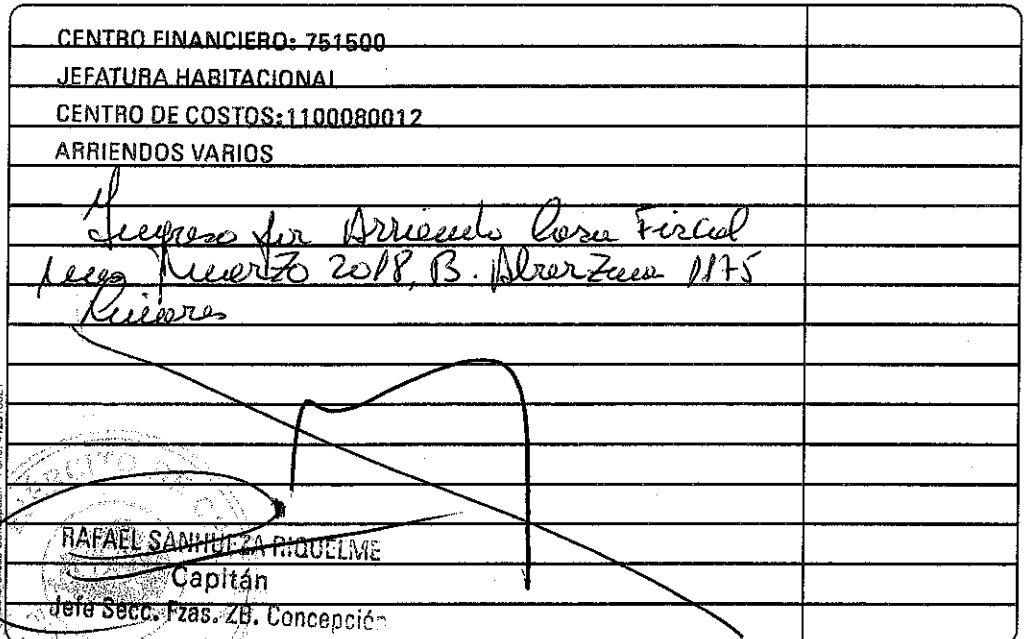 CENTRO FINANCIERO: 751500
JEFATURA HABITACIONAL
CENTRO DE COSTOS:1100080012
ARRIENDOS VARIOS
Ingreso por Arriendo Casa Fiscal
mes Marzo 2018, B. 1175
Linares
EJERCITO DE
RAFAEL SANHUEZA RIQUELME
Capitán
Jefe Secc. Fzas. ZB. Concepción